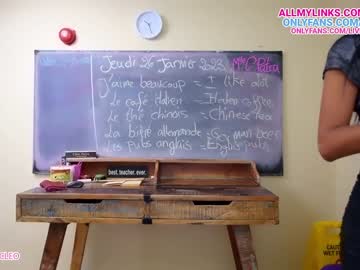 ALLMYLINKS.COM
ONLYFANS.COM/
ONLYFANS.COM/LIV
Jeudi 26 Janvier 2023
J'aime beaucoup = I like alot
Le café italien = Italien coffee
Le thé chinois = Chinese tea
La bière allemande = German beer
Les Pubs anglais = English pubs
best. teacher. ever.
CAUTION
WET
CLEO